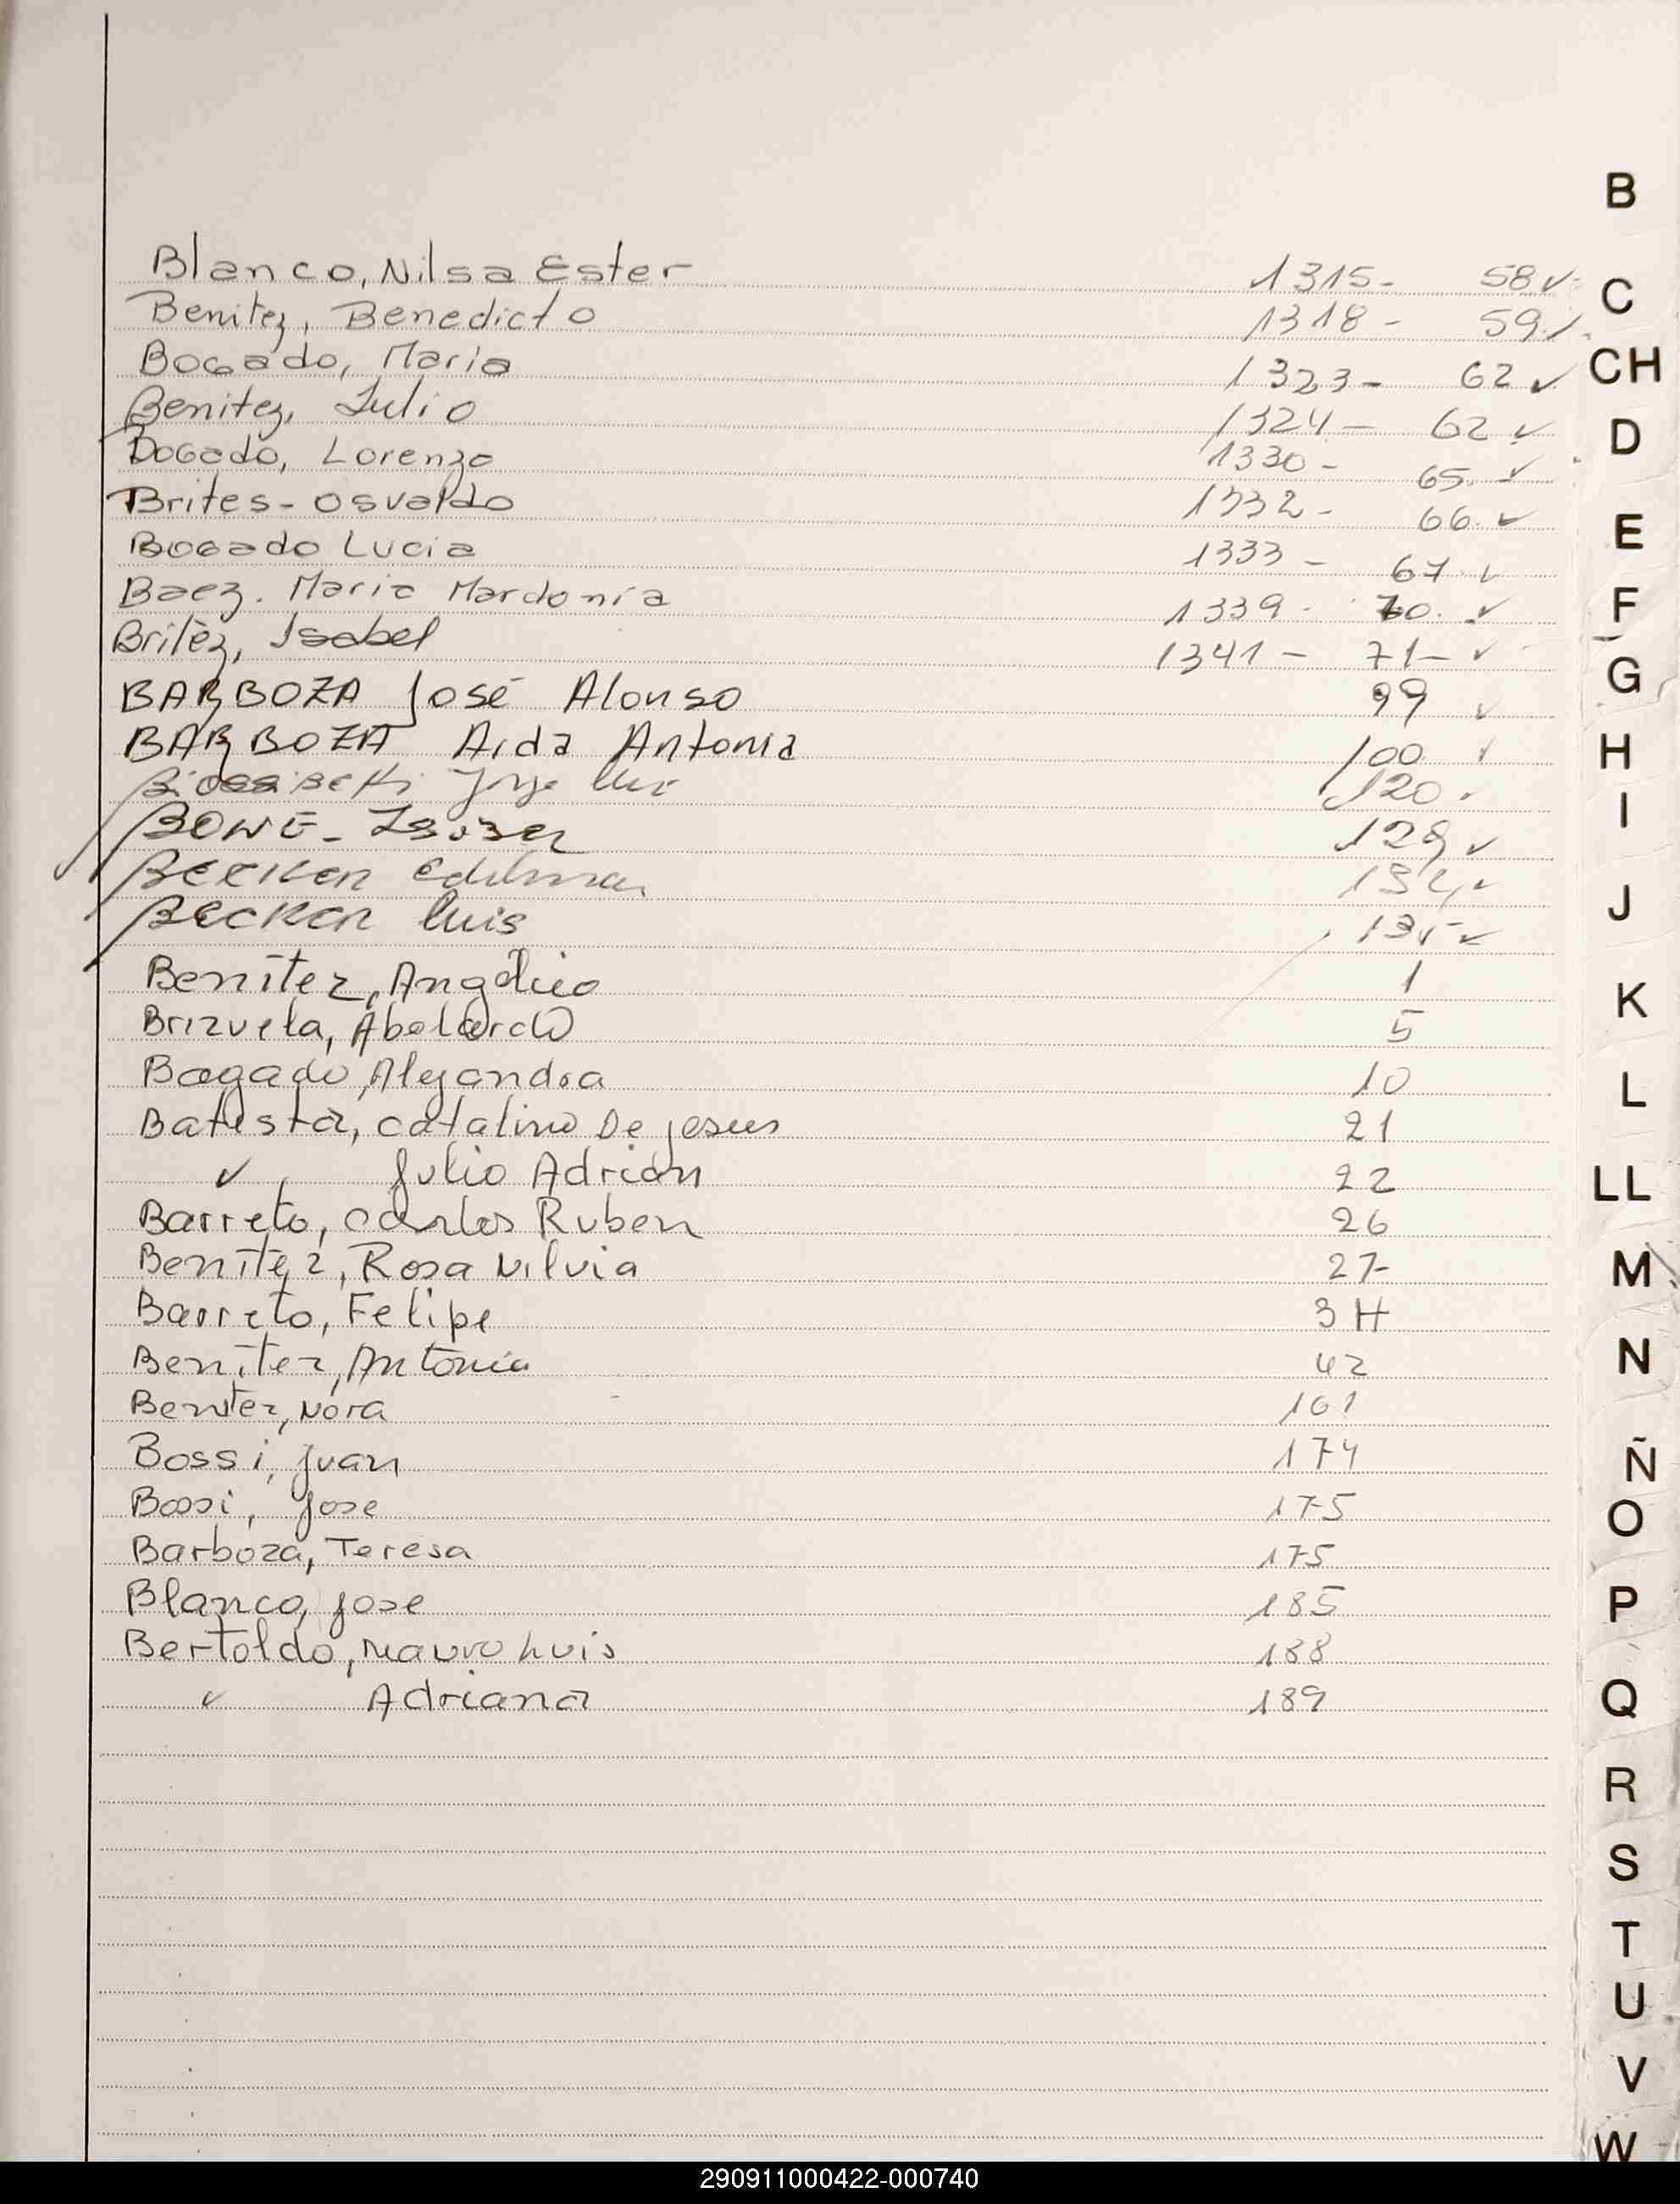 B
Blanco, Nilsa Ester 1315- 58 ✓
C
Benitez, Benedicto 1318- 59 ✓
Bogado, Maria 1323- 62 ✓
CH
Benitez, Julio 1324- 62 ✓
D
Bogado, Lorenzo 1330- 65. ✓
Brites- Osvaldo 1332- 66. ✓
E
Bogado Lucia 1333- 67. ✓
Baez. Maria Mardonia 1339- 70. ✓
F
Britèz, Isabel 1341- 71- ✓
G
BARBOZA José Alonso 99 ✓
BARBOZA Aida Antonia 100 ✓
H
Jorge Luis 120
I
BOWE- 129 ✓
BECKER ✓
J
BECKER Luis ✓
Benitez, Angélica 1
K
Brizuela, Abelardo 5
Bogado, Alejandra 10
L
Batista, Catalino De jesus 21
✓ Julio Adrian 22
LL
Barreto, Carlos Ruben 26
Benitez, Rosa Nilvia 27-
M
Barreto, Felipe 34
Benitez, Antonia 42
N
Benitez, Nora 161
Bossi, Juan 174
Ñ
Bossi, Jose 175
O
Barboza, Teresa 175
Blanco, Jose 185
P
Bertoldo, Mauro Luis 188
✓ Adriana 189
Q
R
S
T
U
V
W
290911000422-000740